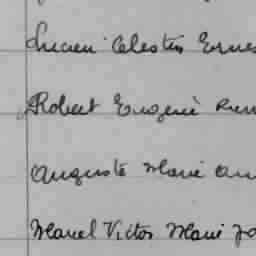 Lucien Celestin Ernes
Robert Eugene
Auguste Marie
Marcel Victor Marie Jo